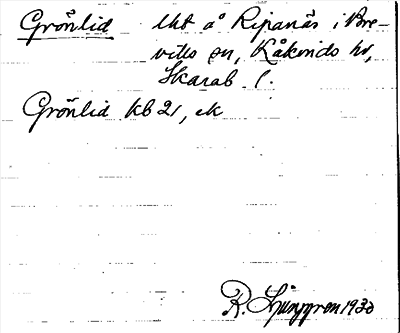 Grönlid lht å Ripanäs i Bre-
viks sn, Kåkinds hd,
Skarab. l.
Grönlid kb 21, ek
R. Ljunggren 1930